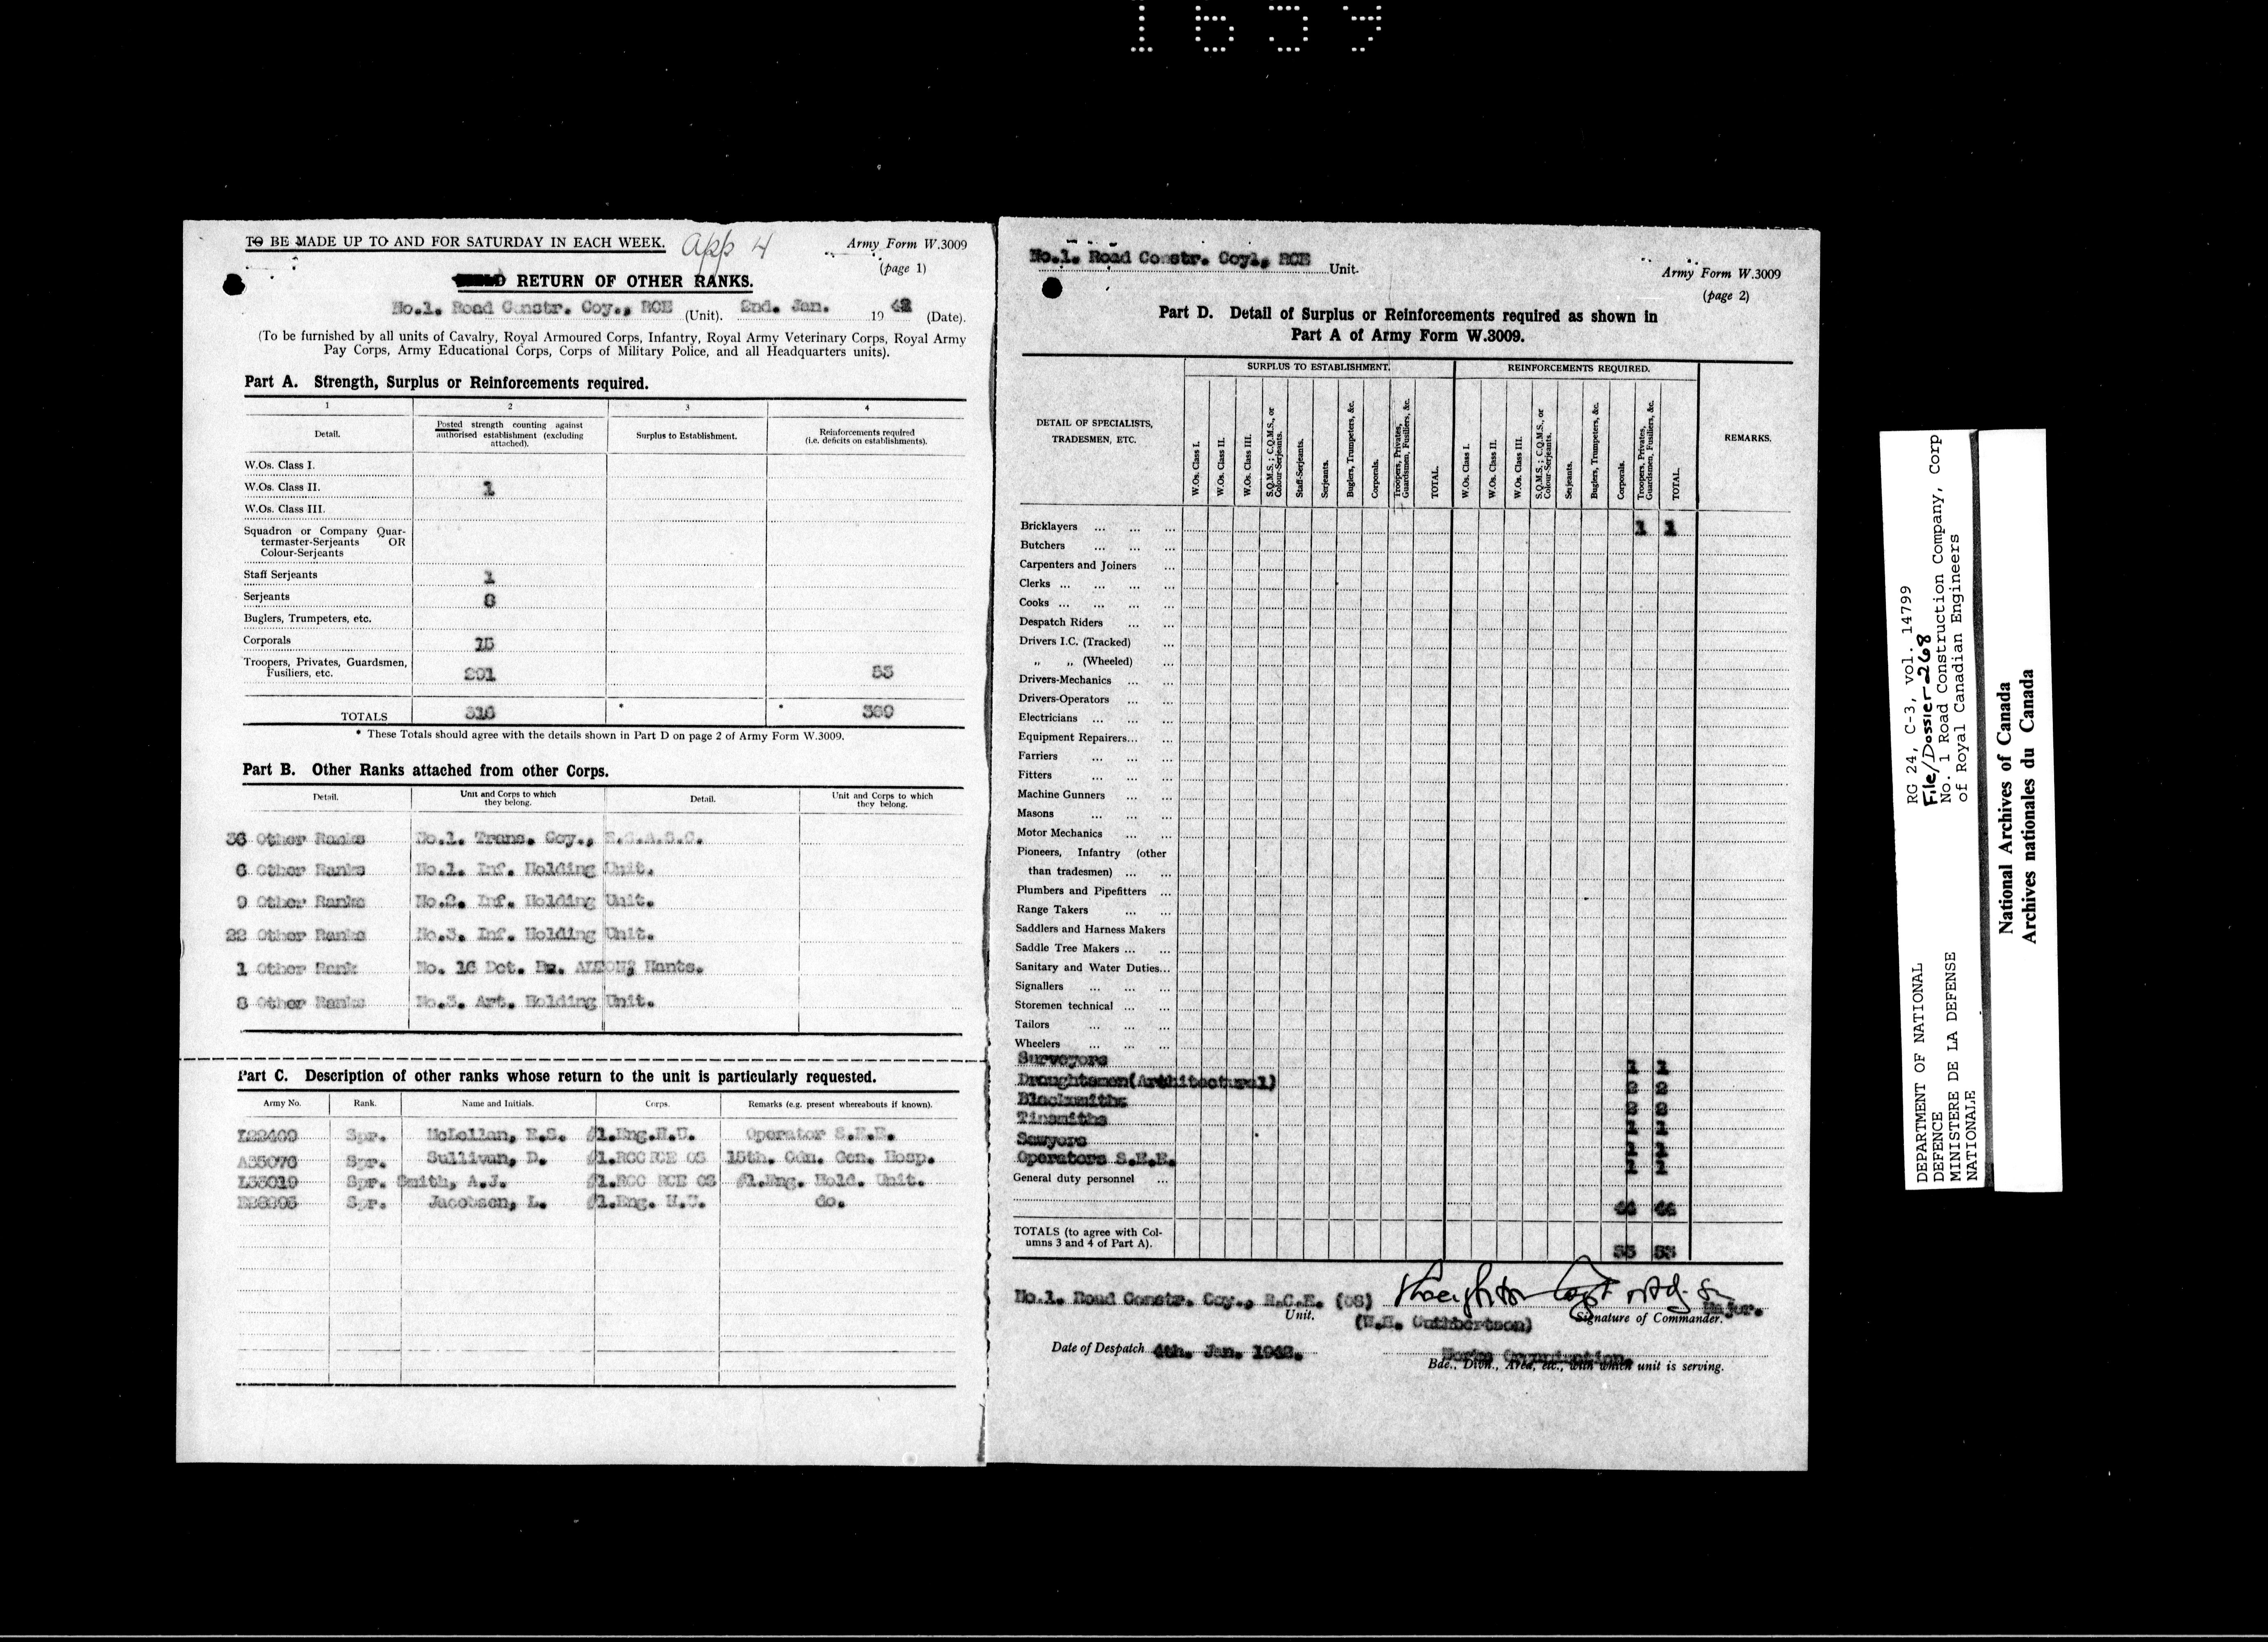 1659
TO BE MADE UP TO AND FOR SATURDAY IN EACH WEEK.
App 4
Army Form W.3009
(page 1)
RETURN OF OTHER RANKS.
No.1. Road Constr. Coy., RCE (Unit). 2nd. Jan. 19 42 (Date).
(To be furnished by all units of Cavalry, Royal Armoured Corps, Infantry, Royal Army Veterinary Corps, Royal Army
Pay Corps, Army Educational Corps, Corps of Military Police, and all Headquarters units).
Part A. Strength, Surplus or Reinforcements required.
1 2 3 4
Detail. Posted strength counting against authorised establishment (excluding attached). Surplus to Establishment. Reinforcements required (i.e. deficits on establishments).
W.Os. Class I.
W.Os. Class II. 1
W.Os. Class III.
Squadron or Company Quar-
termaster-Serjeants OR
Colour-Serjeants
Staff Serjeants 1
Serjeants 8
Buglers, Trumpeters, etc.
Corporals 15
Troopers, Privates, Guardsmen,
Fusiliers, etc. 291 53
TOTALS 316 * * 369
* These Totals should agree with the details shown in Part D on page 2 of Army Form W.3009.
Part B. Other Ranks attached from other Corps.
Detail. Unit and Corps to which they belong. Detail. Unit and Corps to which they belong.
36 Other Ranks No.1. Trans. Coy., R.C.A.S.C.
6 Other Ranks No.1. Inf. Holding Unit.
9 Other Ranks No.2. Inf. Holding Unit.
22 Other Ranks No.3. Inf. Holding Unit.
1 Other Rank No. 16 Det. Bn. ALTON, Hants.
8 Other Ranks No.3. Art. Holding Unit.
Part C. Description of other ranks whose return to the unit is particularly requested.
Army No. Rank. Name and Initials. Corps. Remarks (e.g. present whereabouts if known).
Spr. McLellan, E.S. #1.Eng.H.U. Operator S.E.E.
A35076 Spr. Sullivan, D. #1.RCC RCE OS 15th. Cdn. Gen. Hosp.
Spr. Smith, A.J. #1.RCC RCE OS #1.Eng. Hold. Unit.
Spr. Jacobsen, L. #1.Eng. H.U. do.
No.1. Road Constr. Coyl, RCE Unit.
Army Form W.3009
(page 2)
Part D. Detail of Surplus or Reinforcements required as shown in
Part A of Army Form W.3009.
DETAIL OF SPECIALISTS,
TRADESMEN, ETC.
SURPLUS TO ESTABLISHMENT.
W.Os. Class I.
W.Os. Class II.
W.Os. Class III.
S.Q.M.S.; C.Q.M.S., or Colour-Serjeants.
Staff-Serjeants.
Serjeants.
Buglers, Trumpeters, &c.
Corporals.
Troopers, Privates, Guardsmen, Fusiliers, &c.
TOTAL.
REINFORCEMENTS REQUIRED.
W.Os. Class I.
W.Os. Class II.
W.Os. Class III.
S.Q.M.S.; C.Q.M.S., or Colour-Serjeants.
Serjeants.
Buglers, Trumpeters, &c.
Corporals.
Troopers, Privates, Guardsmen, Fusiliers, &c.
TOTAL.
REMARKS.
Bricklayers ... ... ... 1 1
Butchers ... ... ...
Carpenters and Joiners ...
Clerks ... ... ... ...
Cooks ... ... ... ...
Despatch Riders ... ...
Drivers I.C. (Tracked) ...
,, ,, (Wheeled) ...
Drivers-Mechanics ... ...
Drivers-Operators ... ...
Electricians ... ... ...
Equipment Repairers... ...
Farriers ... ... ...
Fitters ... ... ...
Machine Gunners ... ...
Masons ... ... ...
Motor Mechanics ... ...
Pioneers, Infantry (other
than tradesmen) ... ...
Plumbers and Pipefitters ...
Range Takers ... ...
Saddlers and Harness Makers
Saddle Tree Makers ... ...
Sanitary and Water Duties...
Signallers ... ... ...
Storemen technical ... ...
Tailors ... ... ...
Wheelers ... ... ...
Surveyors 1 1
Draughtsmen(Architectural) 2 2
Blacksmiths 2 2
Tinsmiths 1 1
Sawyers 1 1
Operators S.E.E. 1 1
General duty personnel ...
44 44
TOTALS (to agree with Col-
umns 3 and 4 of Part A). 53 53
No.1. Road Constr. Coy., R.C.E. (OS)
Unit.
Capt
Major.
Signature of Commander.
(W.H. Cuthbertson)
Date of Despatch 4th. Jan. 1942.
Works Organization.
Bde., Divn., Area, etc., with which unit is serving.
RG 24, C-3, vol. 14799
File/Dossier-268
No. 1 Road Construction Company, Corp
of Royal Canadian Engineers
DEPARTMENT OF NATIONAL
DEFENCE
MINISTERE DE LA DEFENSE
NATIONALE
National Archives of Canada
Archives nationales du Canada